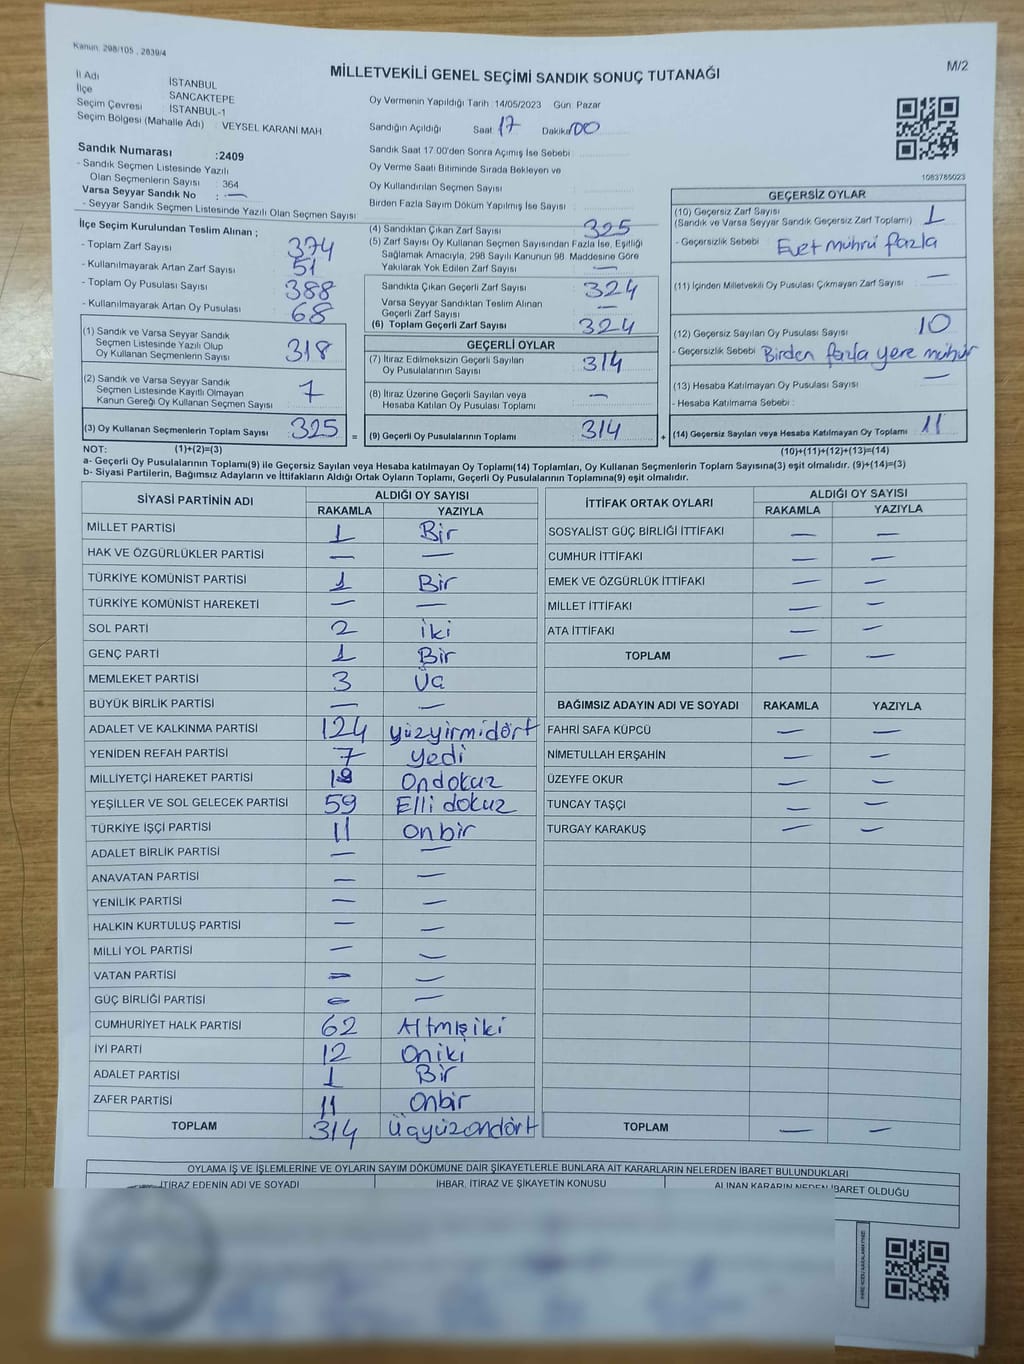 Kanun: 298/105 , 2839/4
MİLLETVEKİLİ GENEL SEÇİMİ SANDIK SONUÇ TUTANAĞI
M/2
İl Adı İSTANBUL
İlçe SANCAKTEPE
Seçim Çevresi İSTANBUL-1
Seçim Bölgesi (Mahalle Adı) : VEYSEL KARANİ MAH
Sandık Numarası :2409
- Sandık Seçmen Listesinde Yazılı
Olan Seçmenlerin Sayısı : 364
Varsa Seyyar Sandık No : —
- Seyyar Sandık Seçmen Listesinde Yazılı Olan Seçmen Sayısı
Oy Vermenin Yapıldığı Tarih :14/05/2023 Gün: Pazar
Sandığın Açıldığı Saat 17 Dakika 00
Sandık Saat 17.00'den Sonra Açımış İse Sebebi
Oy Verme Saati Bitiminde Sırada Bekleyen ve
Oy Kullandırılan Seçmen Sayısı
Birden Fazla Sayım Döküm Yapılmış İse Sayısı
1083785023
İlçe Seçim Kurulundan Teslim Alınan ;
- Toplam Zarf Sayısı 374
- Kullanılmayarak Artan Zarf Sayısı 51
- Toplam Oy Pusulası Sayısı 388
- Kullanılmayarak Artan Oy Pusulası 68
(1) Sandık ve Varsa Seyyar Sandık
Seçmen Listesinde Yazılı Olup
Oy Kullanan Seçmenlerin Sayısı 318
(2) Sandık ve Varsa Seyyar Sandık
Seçmen Listesinde Kayıtlı Olmayan
Kanun Gereği Oy Kullanan Seçmen Sayısı 7
(3) Oy Kullanan Seçmenlerin Toplam Sayısı 325 =
(4) Sandıktan Çıkan Zarf Sayısı 325
(5) Zarf Sayısı Oy Kullanan Seçmen Sayısından Fazla İse, Eşitliği
Sağlamak Amacıyla, 298 Sayılı Kanunun 98. Maddesine Göre
Yakılarak Yok Edilen Zarf Sayısı —
Sandıkta Çıkan Geçerli Zarf Sayısı 324
Varsa Seyyar Sandıktan Teslim Alınan
Geçerli Zarf Sayısı —
(6) Toplam Geçerli Zarf Sayısı 324
GEÇERLİ OYLAR
(7) İtiraz Edilmeksizin Geçerli Sayılan
Oy Pusulalarının Sayısı 314
(8) İtiraz Üzerine Geçerli Sayılan veya
Hesaba Katılan Oy Pusulası Toplamı —
(9) Geçerli Oy Pusulalarının Toplamı 314 +
GEÇERSİZ OYLAR
(10) Geçersiz Zarf Sayısı 1
(Sandık ve Varsa Seyyar Sandık Geçersiz Zarf Toplamı)
- Geçersizlik Sebebi Evet mührü fazla
(11) İçinden Milletvekili Oy Pusulası Çıkmayan Zarf Sayısı —
(12) Geçersiz Sayılan Oy Pusulası Sayısı 10
- Geçersizlik Sebebi Birden fazla yere mühür
(13) Hesaba Katılmayan Oy Pusulası Sayısı —
- Hesaba Katılmama Sebebi :
(14) Geçersiz Sayılan veya Hesaba Katılmayan Oy Toplamı 11
NOT: (1)+(2)=(3) (10)+(11)+(12)+(13)=(14)
a- Geçerli Oy Pusulalarının Toplamı(9) ile Geçersiz Sayılan veya Hesaba katılmayan Oy Toplamı(14) Toplamları, Oy Kullanan Seçmenlerin Toplam Sayısına(3) eşit olmalıdır. (9)+(14)=(3)
b- Siyasi Partilerin, Bağımsız Adayların ve İttifakların Aldığı Ortak Oyların Toplamı, Geçerli Oy Pusulalarının Toplamına(9) eşit olmalıdır.
SİYASİ PARTİNİN ADI ALDIĞI OY SAYISI
RAKAMLA YAZIYLA
MİLLET PARTİSİ 1 Bir
HAK VE ÖZGÜRLÜKLER PARTİSİ — —
TÜRKİYE KOMÜNİST PARTİSİ 1 Bir
TÜRKİYE KOMÜNİST HAREKETİ — —
SOL PARTİ 2 iki
GENÇ PARTİ 1 Bir
MEMLEKET PARTİSİ 3 Üç
BÜYÜK BİRLİK PARTİSİ — —
ADALET VE KALKINMA PARTİSİ 124 yüzyirmidört
YENİDEN REFAH PARTİSİ 7 yedi
MİLLİYETÇİ HAREKET PARTİSİ 19 Ondokuz
YEŞİLLER VE SOL GELECEK PARTİSİ 59 Elli dokuz
TÜRKİYE İŞÇİ PARTİSİ 11 onbir
ADALET BİRLİK PARTİSİ — —
ANAVATAN PARTİSİ — —
YENİLİK PARTİSİ — —
HALKIN KURTULUŞ PARTİSİ — —
MİLLİ YOL PARTİSİ — —
VATAN PARTİSİ — —
GÜÇ BİRLİĞİ PARTİSİ — —
CUMHURİYET HALK PARTİSİ 62 Altmışiki
İYİ PARTİ 12 Oniki
ADALET PARTİSİ 1 Bir
ZAFER PARTİSİ 11 Onbir
TOPLAM 314 Üçyüzondört
İTTİFAK ORTAK OYLARI ALDIĞI OY SAYISI
RAKAMLA YAZIYLA
SOSYALİST GÜÇ BİRLİĞİ İTTİFAKI — —
CUMHUR İTTİFAKI — —
EMEK VE ÖZGÜRLÜK İTTİFAKI — —
MİLLET İTTİFAKI — —
ATA İTTİFAKI — —
TOPLAM — —
BAĞIMSIZ ADAYIN ADI VE SOYADI RAKAMLA YAZIYLA
FAHRİ SAFA KÜPCÜ — —
NİMETULLAH ERŞAHİN — —
ÜZEYFE OKUR — —
TUNCAY TAŞÇI — —
TURGAY KARAKUŞ — —
TOPLAM — —
OYLAMA İŞ VE İŞLEMLERİNE VE OYLARIN SAYIM DÖKÜMÜNE DAİR ŞİKAYETLERLE BUNLARA AİT KARARLARIN NELERDEN İBARET BULUNDUKLARI
İTİRAZ EDENİN ADI VE SOYADI İHBAR, İTİRAZ VE ŞİKAYETİN KONUSU ALINAN KARARIN NEDEN İBARET OLDUĞU